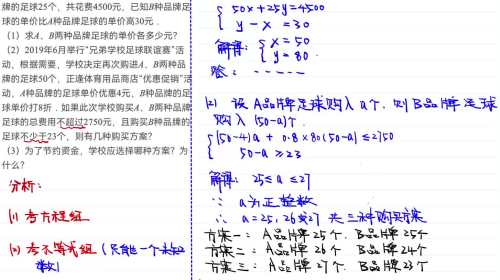 牌的足球25个，共花费4500元，已知B种品牌足
球的单价比A种品牌足球的单价高30元．
（1）求A、B两种品牌足球的单价各多少元？
（2）2019年6月举行"兄弟学校足球联谊赛"活
动，根据需要，学校决定再次购进A、B两种品
牌的足球50个，正逢体育用品商店"优惠促销"活
动，A种品牌的足球单价优惠4元，B种品牌的足
球单价打8折．如果此次学校购买A、B两种品牌
足球的总费用不超过2750元，且购买B种品牌的
足球不少于23个，则有几种购买方案？
（3）为了节约资金，学校应选择哪种方案？为
什么？
分析：
(1) 考方程组
(2) 考不等式组（只有一个未知
数）
50x+25y=4500
y-x=30
解得：x=50
y=80
验：-----
(2) 设A品牌足球购入a个，则B品牌足球
购入(50-a)个．
(50-4)a+0.8×80(50-a)≤2750
50-a≥23
解得：25≤a≤27
∵ a为正整数
∴ a=25，26或27 共三种购买方案
方案一：A品牌25个．B品牌25个
方案二：A品牌26个 B品牌24个
方案三：A品牌27个 B品牌23个